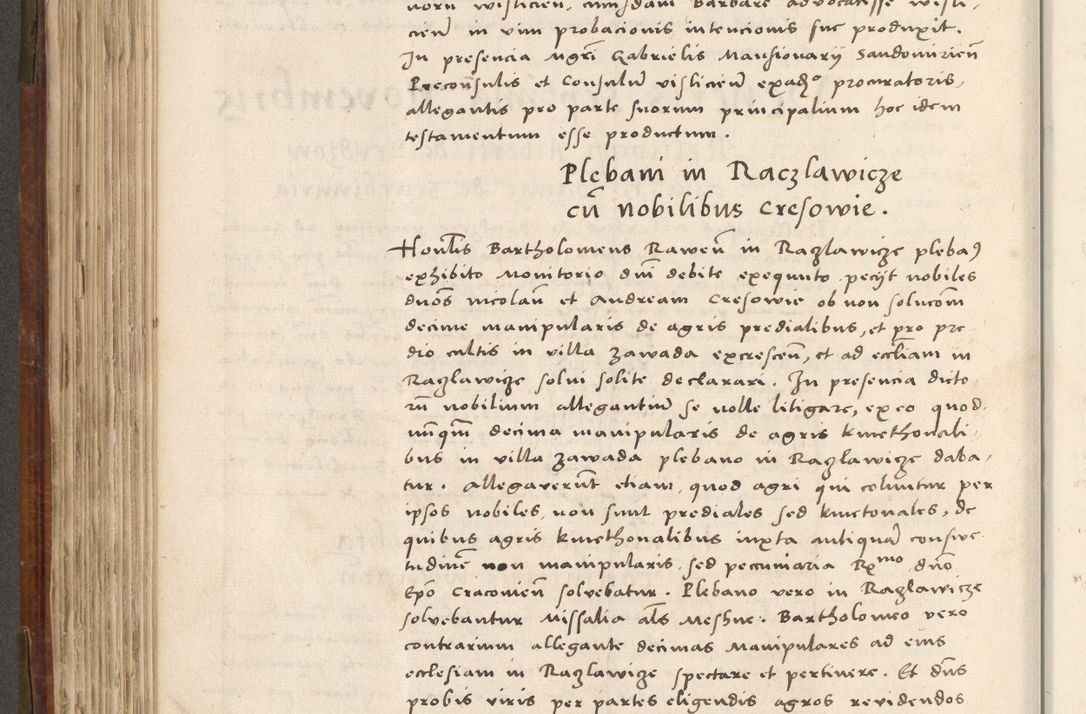 noru wislicien, cuiusdam Barbare advocatisse wisli-
cien in vim probacionis intencionis sue produxit.
In presencia mgri Gabrielis Mansionarij Sandomirien
Preconsulis et Consulu vislicien exadso procuratoris,
allegantis pro parte suorum principalium hoc idem
testamentum esse productum.
Plebani in Raczlawicze
cu nobilibus Cresowie.
Honlis Bartholomeus Rawen in Razlawicze plebas
exhibito Monitorio dni debite exequuto. pecijt nobiles
duos nicolau et Andream Cresowie ob non solucom
decime manipularis de agris predialibus, et pro pre-
dio cultis in villa Zawada excrescen, et ad eccliam in
Razlawicze solui solite declarari. In presencia dicto-
ru nobilium allegantiu se nolle litigare, ex eo quod
nunqm decima manipularis de agris kmethonali-
bus in villa Zawada plebano in Razlawicze daba-
tur. Allegaverunt etiam, quod agri qui coluntur per
ipsos nobiles, non sunt prediales sed kmetonales, de
quibus agris kmethonalibus iuxta antiqua consue-
tudine non manipularis, sed pecuniaria Rxmo dno
Epo Cracouien solvebatur. Plebano vero in Razlawicze
solvebantur Missalia als Meshne. Bartholomeo vero
contrarium allegante decimas Manipulares ad eius
ecclesiam in Razlawicze spectare et pertinere. Et dns
probis viris per partes eligendis agros revidendos